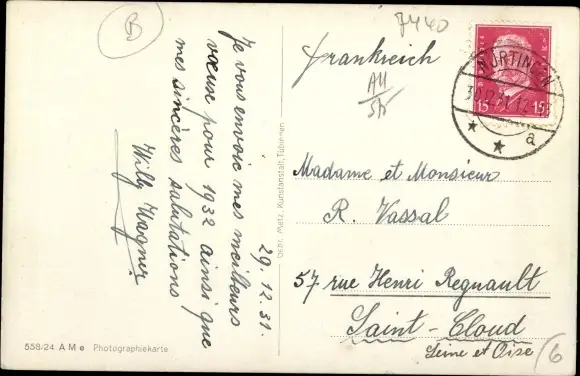 B
7440
29.12.31.
Je vous envoie mes meilleurs
vœuse pour 1932 ainsi que
mes sincères salutations
Willy Wagner
Frankreich
NÜRTINGEN
15 15
a
Madame et Monsieur
R. Vassal
57 rue Henri Regnault
Saint-Cloud
Seine et Oise
6
Gebr. Metz, Kunstanstalt, Tübingen
558/24 A M e Photographiekarte